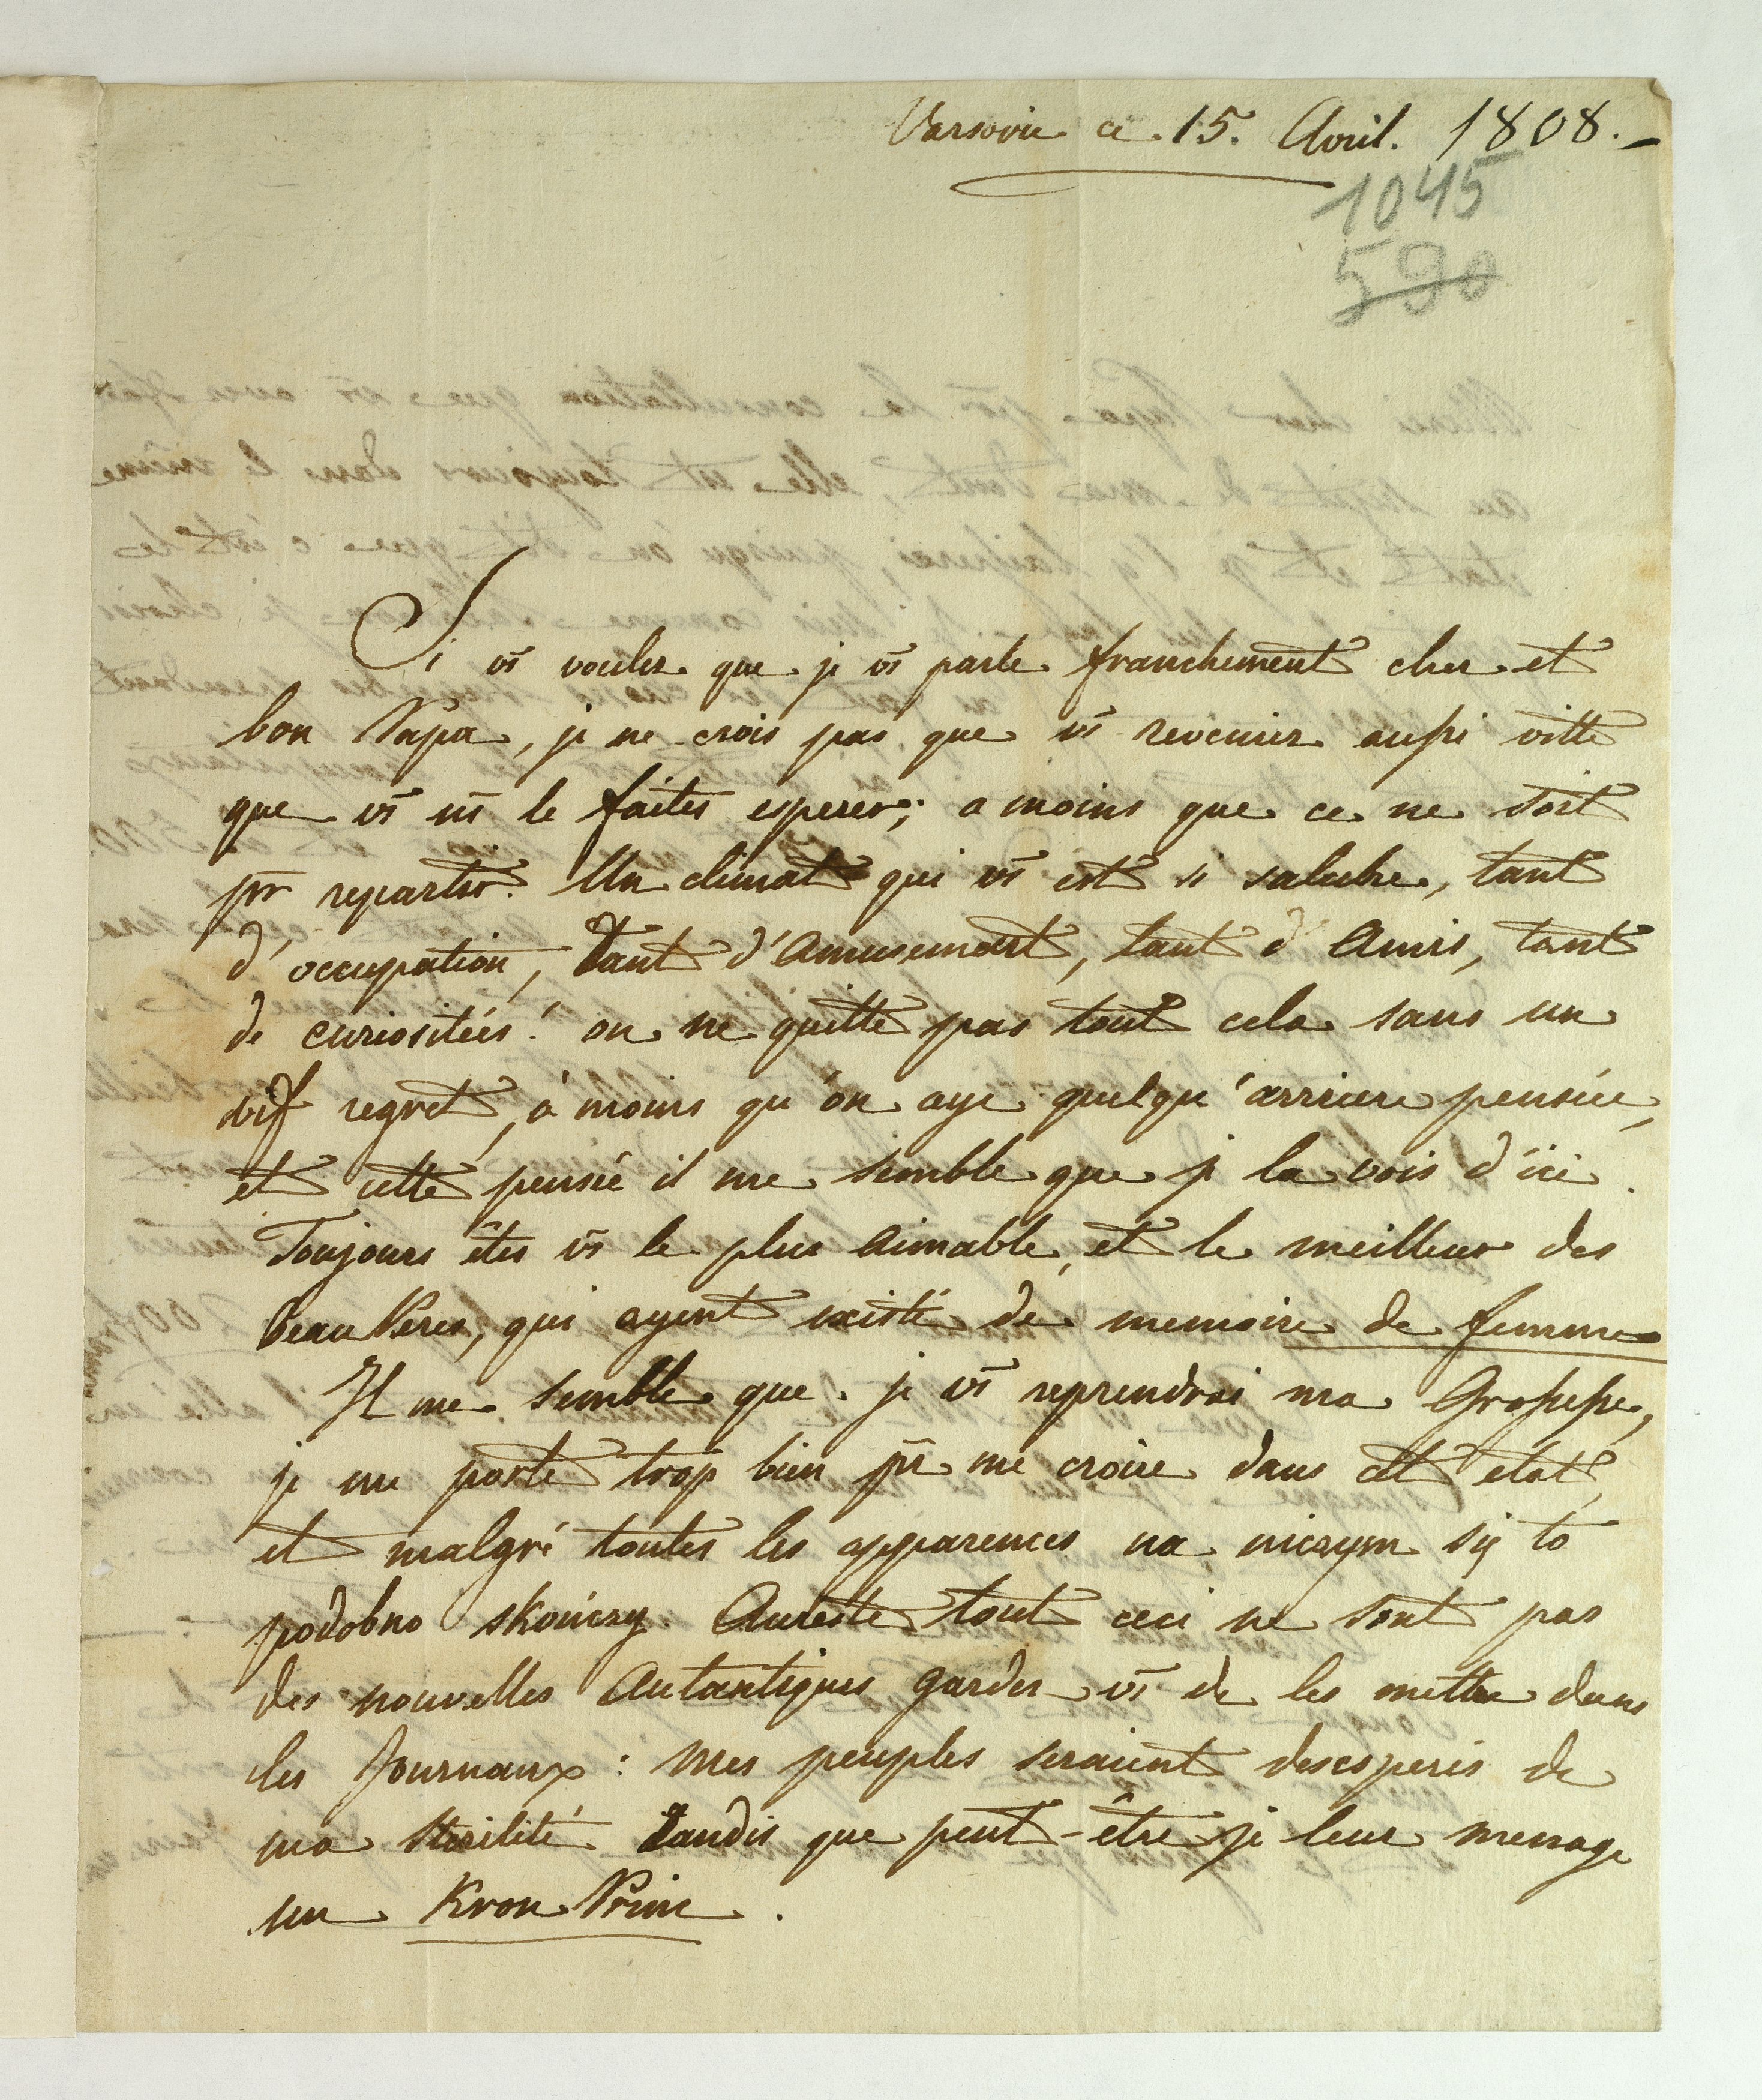 Varsovie ce 15. Avril. 1808. –
1045
590
Si vs voulez que je vs parle franchement cher et
bon Papa, je ne crois pas que vs reveniez aussi vitte
que vs ns le faites esperer; a moins que ce ne soit
pr repartir. Un climat qui vs est si salubre, tant
d'occupation, tant d'Amusement, tant d'Amis, tant
de curiositées! on ne quitte pas tout cela sans un
vif regret, à moins qu'on aye quelqu'arriere pensée,
et cette pensée il me semble que je la vois d'ici.
Toujours êtes vs le plus aimable, et le meilleur des
beau Peres, qui ayent existé de memoire de femme
Il me semble que je vs reprendrai ma Grossesse,
je me porte trop bien pr me croire dans cet état,
et malgré toutes les apparences na niczym się to
podobno skończy. Aureste tout ceci ne sont pas
des nouvelles Autantiques gardez vs de les mettre dans
les Journaux: mes peuples seraient desesperés de
ma sterilité tandis que peut-être je leur menage
un Kron Princ.